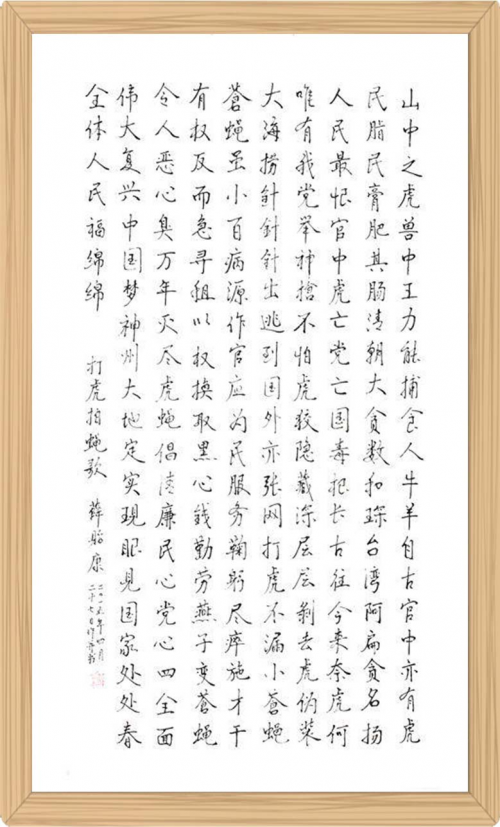 山中之虎兽中王力能捕食人牛羊自古官中亦有虎
民脂民膏肥其肠清朝大贪数和珅台湾阿扁贪名扬
人民最恨官中虎亡党亡国毒把长古往今来奈虎何
唯有我党举神槍不怕虎狡隐藏深层层剥去虎伪装
大海捞針針針出逃到国外亦张网打虎不漏小蒼蝇
蒼蝇虽小百病源作官应为民服务鞠躬尽瘁施才干
有权反而急寻租以权换取黑心钱勤劳燕子变蒼蝇
令人恶心臭万年灭尽虎蝇倡清廉民心党心四全面
伟大复兴中国梦神州大地定实现眼见国家处处春
全体人民福绵绵
打虎拍蝇歌 薛贻康
二〇一五年四月
二十七日作并书